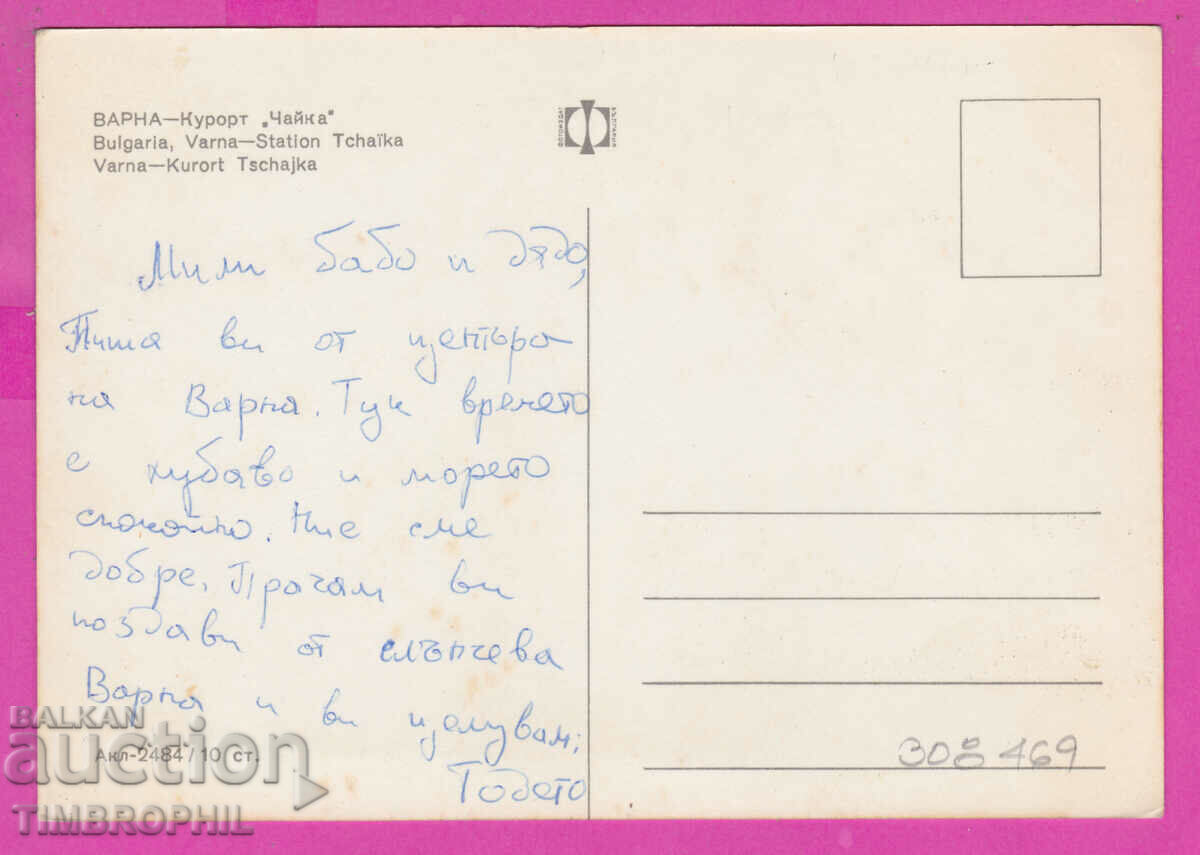 ВАРНА—Курорт „Чайка"
Bulgaria, Varna—Station Tchaïka
Varna—Kurort Tschajka
ФОТОИЗДАТ
БЪЛГАРИЯ
Мили бабо и дядо,
Пиша ви от центъра
на Варна. Тук времето
е хубаво и морето
спокойно. Ние сме
добре. Прачам ви
поздави от слънчева
Варна и ви целувам:
Тодето
Акл-2484/10 ст.
308469
BALKAN
auction
TIMBROPHIL